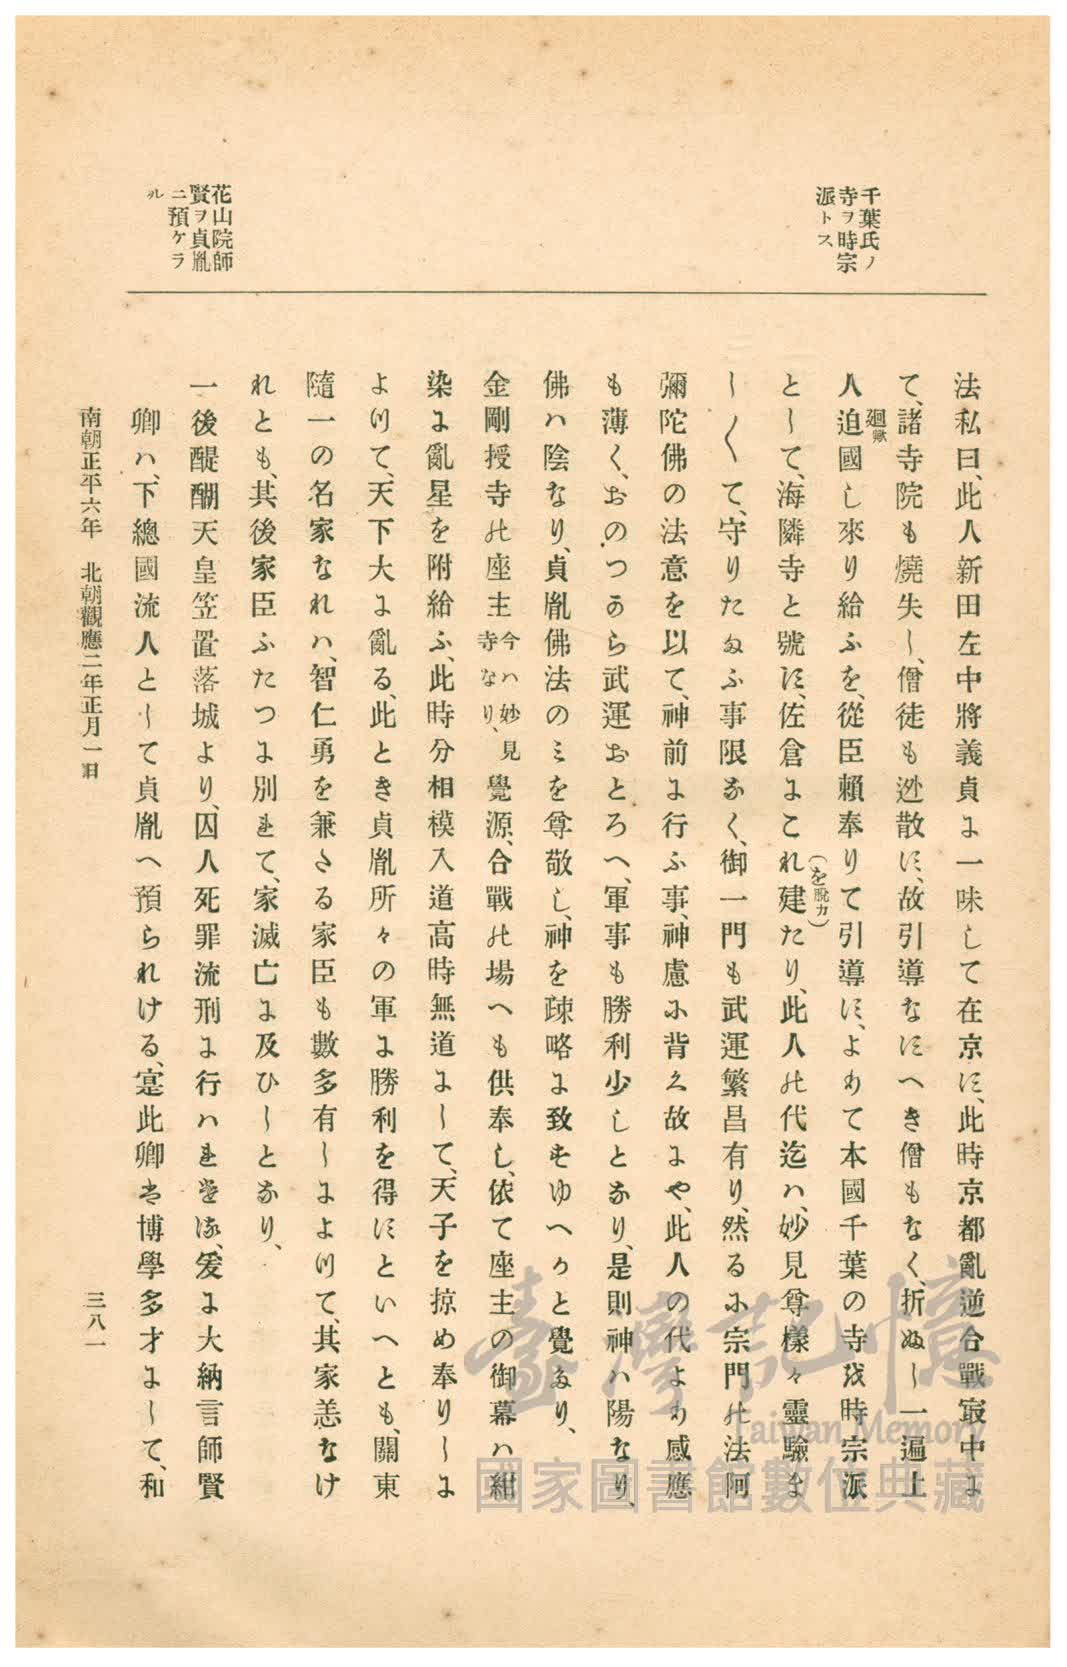 千葉氏ノ
寺ヲ時宗
派トス
花山院師
賢ヲ貞胤
ニ預ケラ
ル
法私曰、此人新田左中將義貞よ一味して在京に、此時京都亂逆合戰㝡中よ
て、諸寺院も燒失し、僧徒も迯散に、故引導なにへき僧もなく、折ぬし一遍上
人迫國し來り給ふを、從臣賴奉りて引導に、よあて本國千葉の寺をは時宗派
廻歟
として、海隣寺と號に、佐倉よこれ建たり、此人の代迄ハ、妙見尊樣々靈驗ま
(を脫カ)
し〱て、守りたまふ事限なく、御一門も武運繁昌有り、然るに宗門の法阿
彌陀佛の法意を以て、神前よ行ふ事、神慮に背く故よや、此人の代より感應
も薄く、おのつから武運おとろへ、軍事も勝利少しとなり、是則神ハ陽なり、
佛ハ陰なり、貞胤佛法のミを尊敬し、神を疎略よ致すゆへかと覺なり、
金剛授寺の座主今ハ妙見寺なり、覺源、合戰の場へも供奉し、依て座主の御幕ハ紺
染よ亂星を附給ふ、此時分相模入道高時無道よして、天子を掠め奉りしよ
よりて、天下大よ亂る、此とき貞胤所々の軍よ勝利を得にといへとも、關東
隨一の名家なれハ、智仁勇を兼たる家臣も數多有しよよりて、其家恙なけ
れとも、其後家臣ふたつよ別れて、家滅亡よ及ひしとなり、
一後醍醐天皇笠置落城より、囚人死罪流刑よ行ハれける、爰よ大納言師賢
卿ハ、下總國流人として貞胤へ預られける、寔此卿は博學多才よして、和
南朝正平六年 北朝觀應二年正月一日
三八一
臺灣記憶
Taiwan Memory
國家圖書館數位典藏